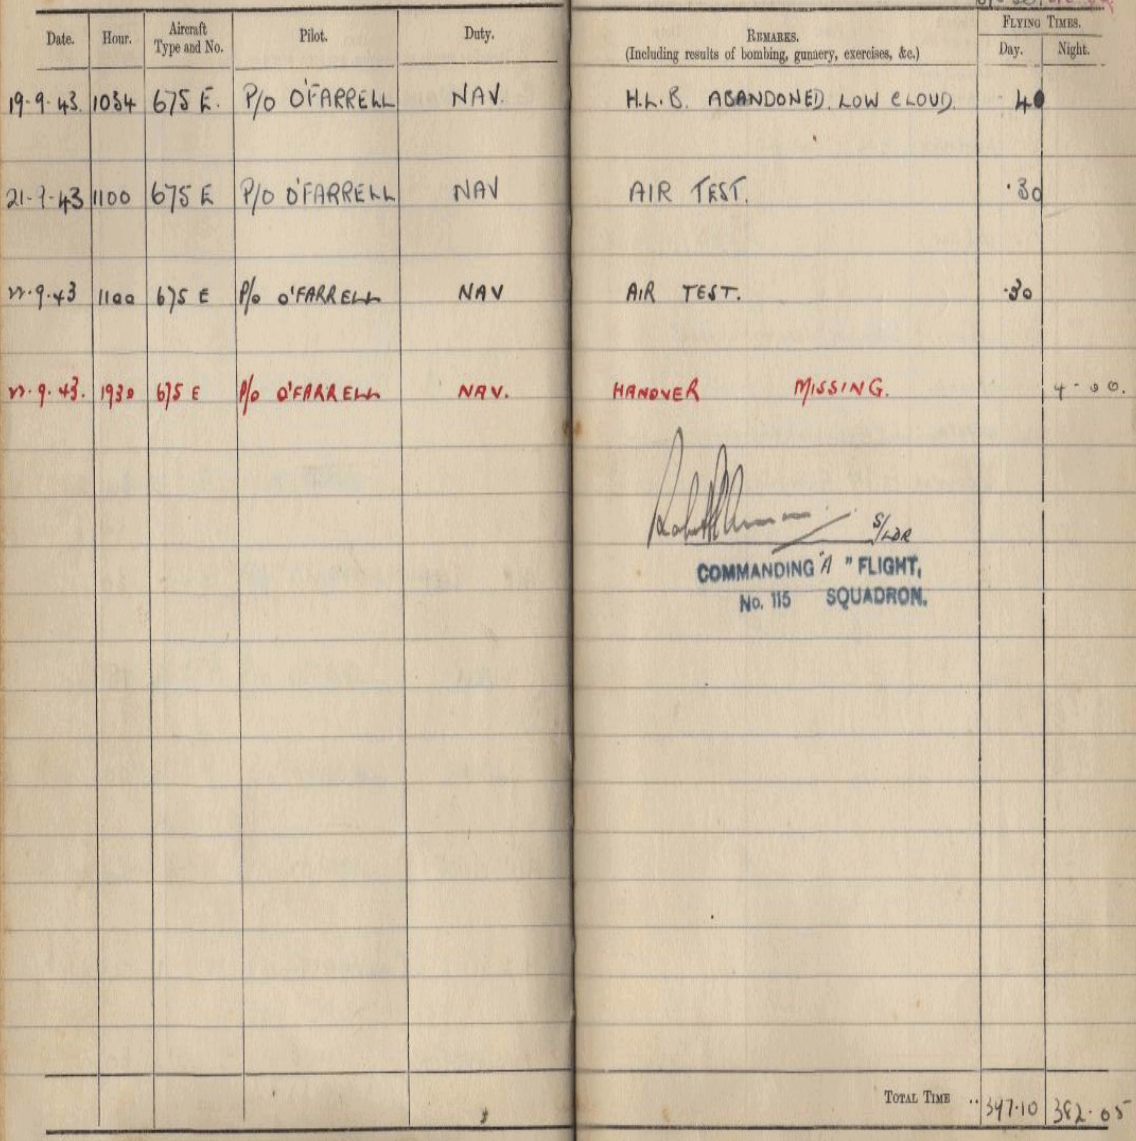 FLYING TIMES.
Date. Hour. Aircraft Type and No. Pilot. Duty. REMARKS. (Including results of bombing, gunnery, exercises, &c.) Day. Night.
19-9-43. 1034 675 E. P/O O'FARRELL NAV. H.L.B. ABANDONED. LOW CLOUD. 40
21-9-43 1100 675 E P/O O'FARRELL NAV AIR TEST. ·30
22-9-43 1100 675 E P/O O'FARRELL NAV AIR TEST. ·30
22-9-43. 1930 675 E P/O O'FARRELL NAV. HANOVER MISSING. 4-00.
S/LDR
COMMANDING "A" FLIGHT,
No. 115 SQUADRON.
TOTAL TIME .. 347·10 382·05